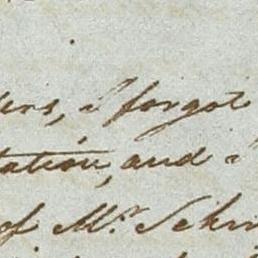 ers, I forgot
tation, and I
of Mr. Schr